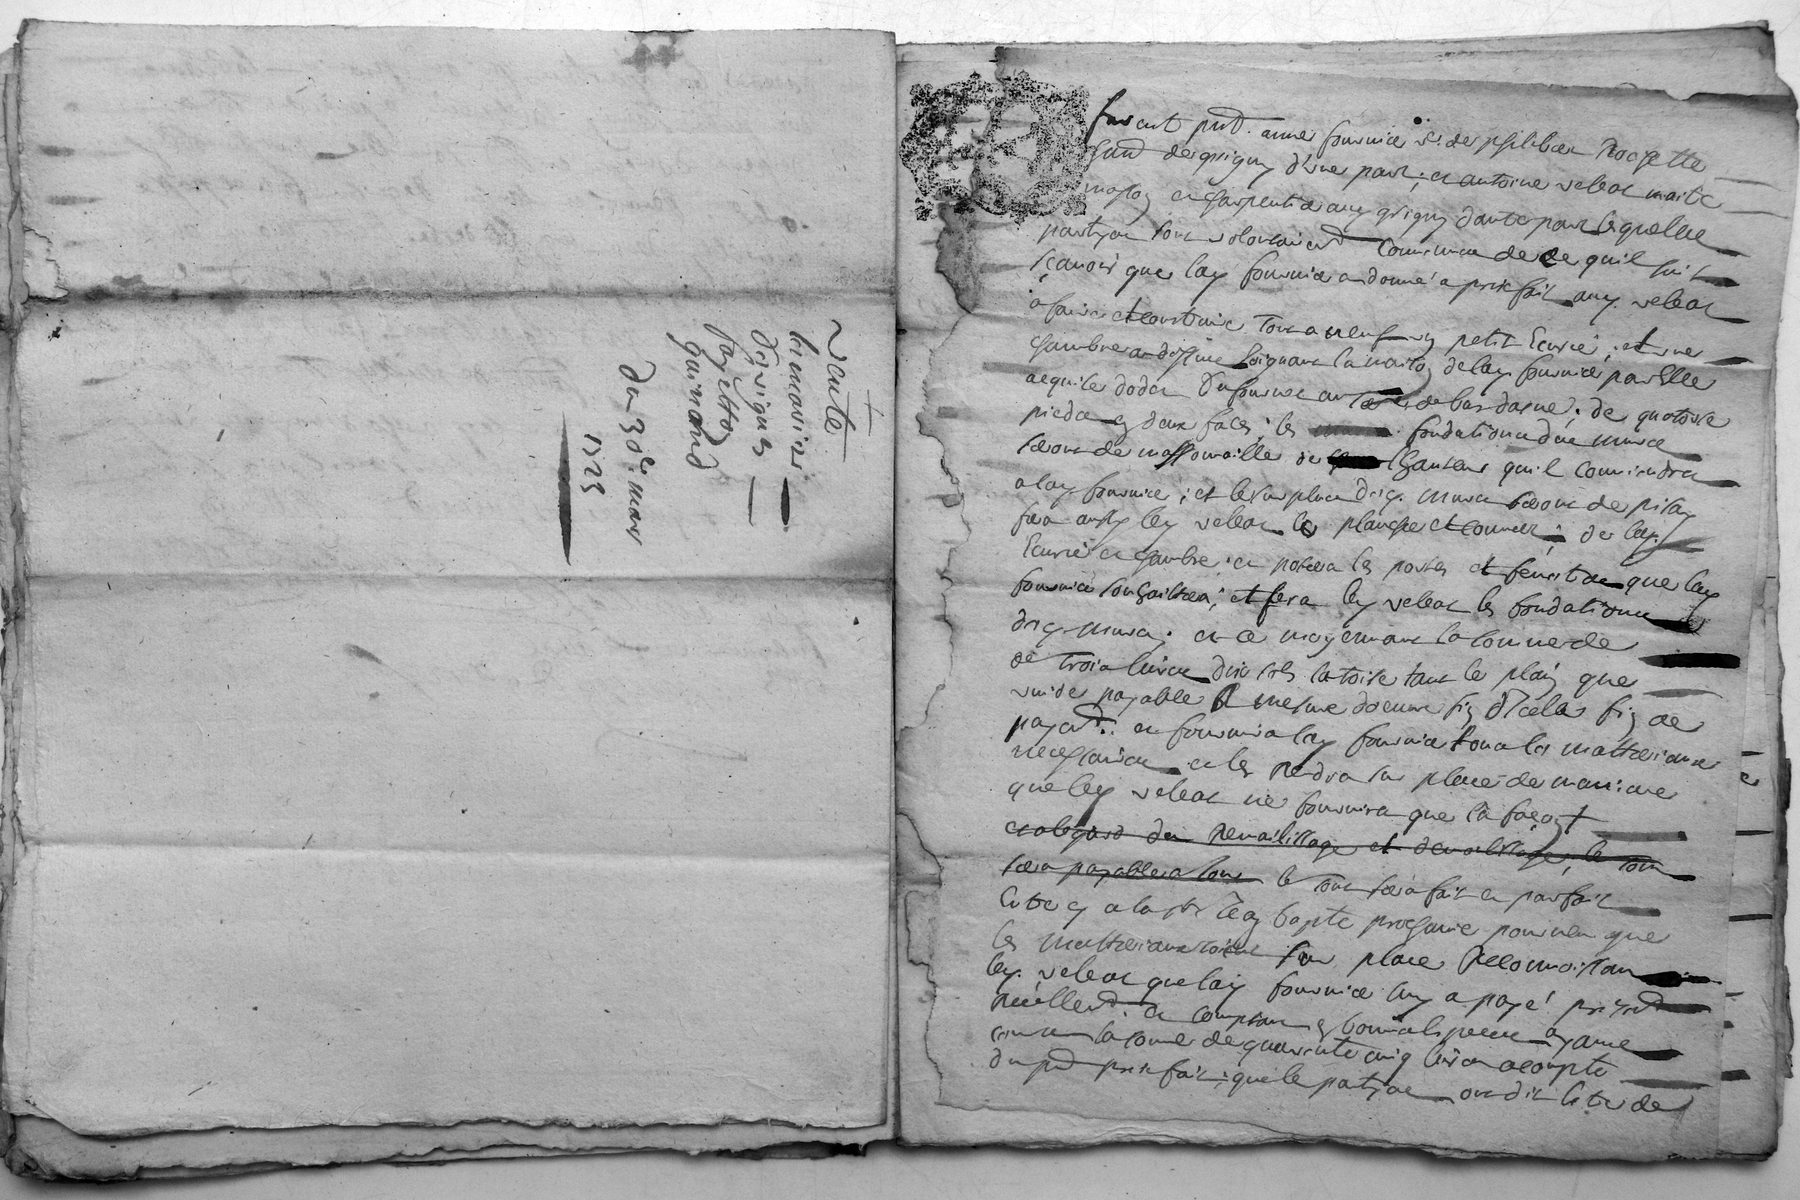 vente
les mariés
de vigne
fayetton
guinand
du 30e mars
1725
furent pnt. anne fournier vve de philibert
hant de grigny d'une part ; et antoine veleat maitre
masson et charpentier audit grigny dautre part lesquelles
partyes sont volontairement convenues de ce quil suit
sçavoir que lad fournier a donné a prix fait aud veleat
a faire et construire tout a neuf un petit Ecurie ; et une
chambre au dessus joignant la maison de lad fournier par Elle
acquise de ; de quatorze
pieds en deux faces ; les fondations des murs
seront de massonnaille de hauteur quil conviendra
a lad fournier ; et le surplus desd. murs seront de pisay
fera aussy led veleat le planché et couvert ; de lad.
Ecurie et chambre ; et posera les portes et fenestres que lad
fournier souhaittera ; et fera led veleat les fondations
desd. murs ; et ce moyennant la somme de
de trois livres dix sols la toise tant le plain que
vuide payable a mesure doeuvre fin dicelle fin de
payemt. et fournira lad fournier tous les mattereiaux
necessaires et les rendra sur place de maniere
que led veleat ne fournira que la façon
et alegard du et le tout
sera payable a tous le tout sera fait et parfait
Entre cy a la st Jean bapte prochaine pourveu que
les mattereiaux soient sur place Reconnoissant
led. veleat que lad fournier luy a payé presentemt
reellemt. et comptant en bonnes especes ayant
cours la somme de quarente cinq livres acompte
du pnt prix fait ; que les partyes ont dit Estre de